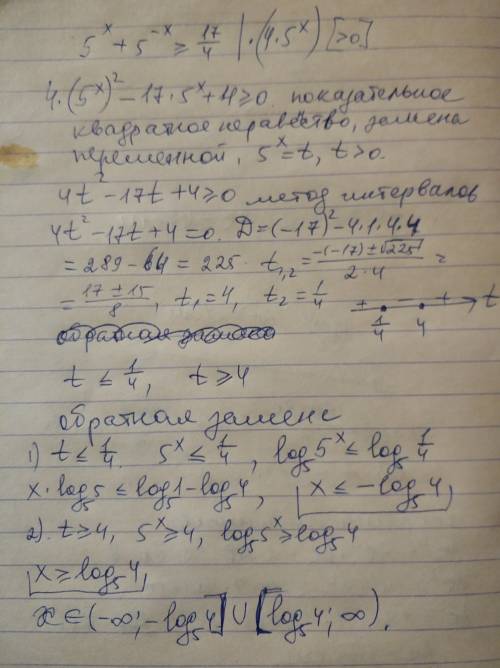 5^x + 5^{-x} ≥ 17/4 | · (4 · 5^x) [>0]
4 · (5^x)^2 − 17 · 5^x + 4 ≥ 0. показательное
квадратное неравенство, замена
переменной, 5^x = t, t > 0.
4t^2 − 17t + 4 ≥ 0 метод интервалов
4t^2 − 17t + 4 = 0. D = (−17)^2 − 4 · 1 · 4 · 4
= 289 − 64 = 225. t_{1,2} = (−(−17) ± √225)/(2 · 4) =
= (17 ± 15)/8, t_1 = 4, t_2 = 1/4
+ − + t
1/4 4
t ≤ 1/4, t ≥ 4
обратная замена
1) t ≤ 1/4. 5^x ≤ 1/4, log_5 5^x ≤ log_5 1/4
x · log_5 5 ≤ log_5 1 − log_5 4, x ≤ −log_5 4
2). t ≥ 4, 5^x ≥ 4, log_5 5^x ≥ log_5 4
x ≥ log_5 4
x ∈ (−∞; −log_5 4] ∪ [log_5 4; ∞).